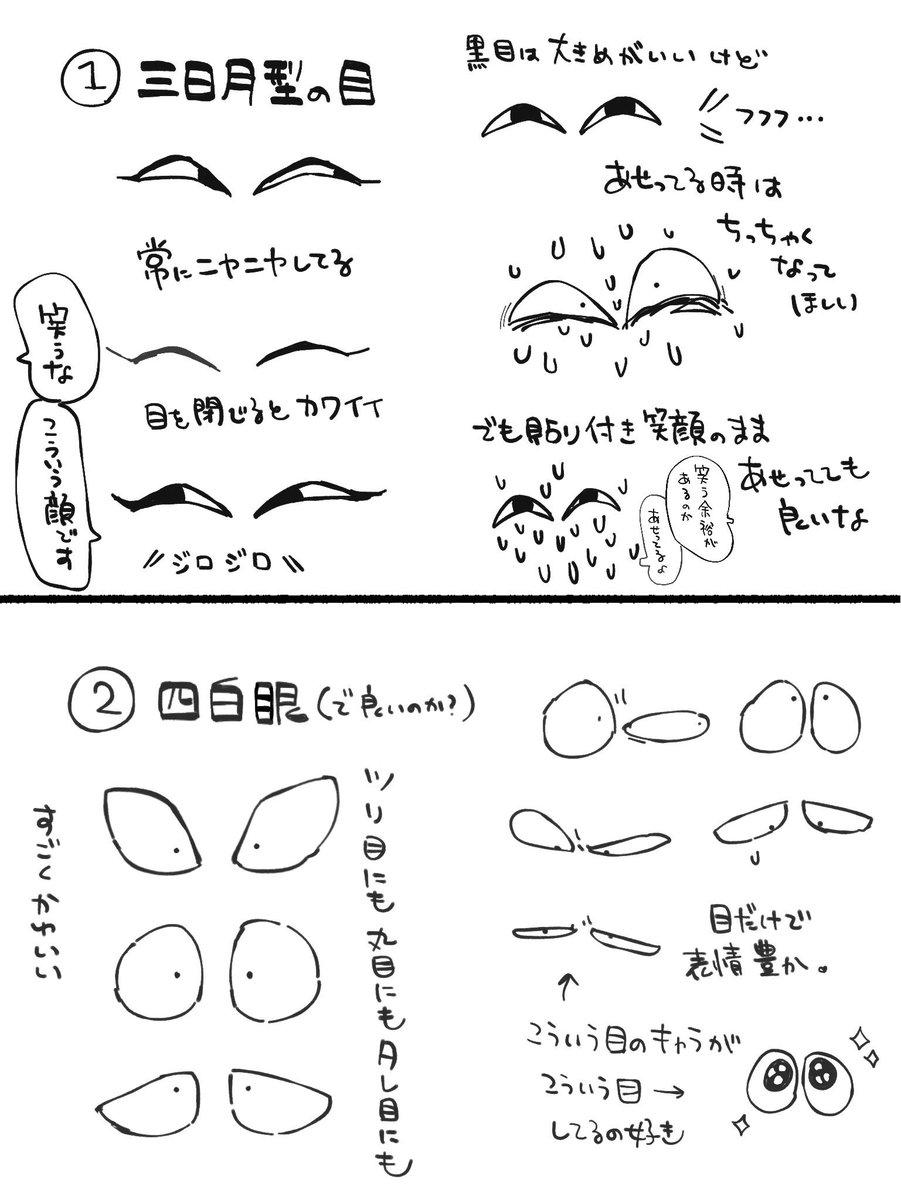 ① 三日月型の目
常にニヤニヤしてる
笑うな
目を閉じるとカワイイ
こういう顔です
ジロジロ
黒目は大きめがいいけど
フフフ…
あせってる時は
ちっちゃく
なって
ほしい
でも貼り付き笑顔のまま
あせってても
良いな
笑う余裕が
あるのか
あせってるよ
② 四白眼(で良いのか?)
すごくかわいい
ツリ目にも丸目にもタレ目にも
目だけで
表情豊か。
↑
こういう目のキャラが
こういう目→
してるの好き